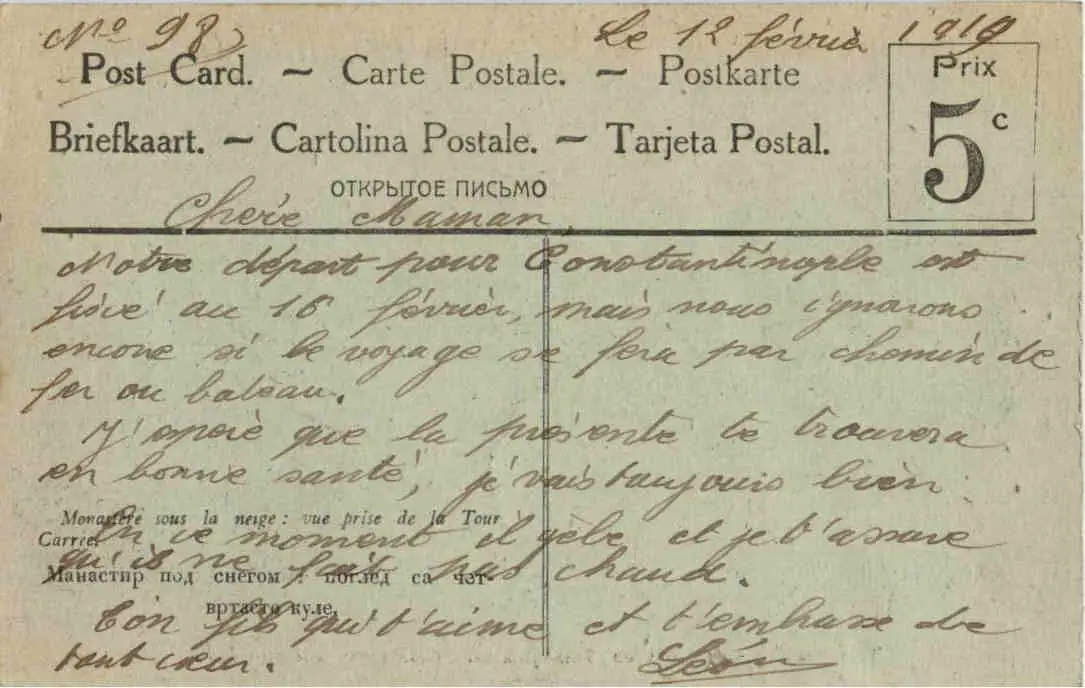 Nº 98
Le 12 févriè 1919
Post Card. – Carte Postale. – Postkarte
Prix
5c
Briefkaart. – Cartolina Postale. – Tarjeta Postal.
ОТКРЫТОЕ ПИСЬМО
Chère Maman,
Notre départ pour Constantinople est
fixé au 16 févrièr, mais nous ignorons
encore si le voyage se fera par chemin de
fer ou bateau.
J'espère que la présente te trouvera
en bonne santé, je vais toujours bien.
Monastère sous la neige : vue prise de la Tour
Carrée.
En ce moment il gèle et je t'assure
qu'il ne fait pas chaud.
Манастир под снегом : поглед са чет-
вртасте куле.
Ton fils qui t'aime et t'embrasse de
tout cœur.
Léon